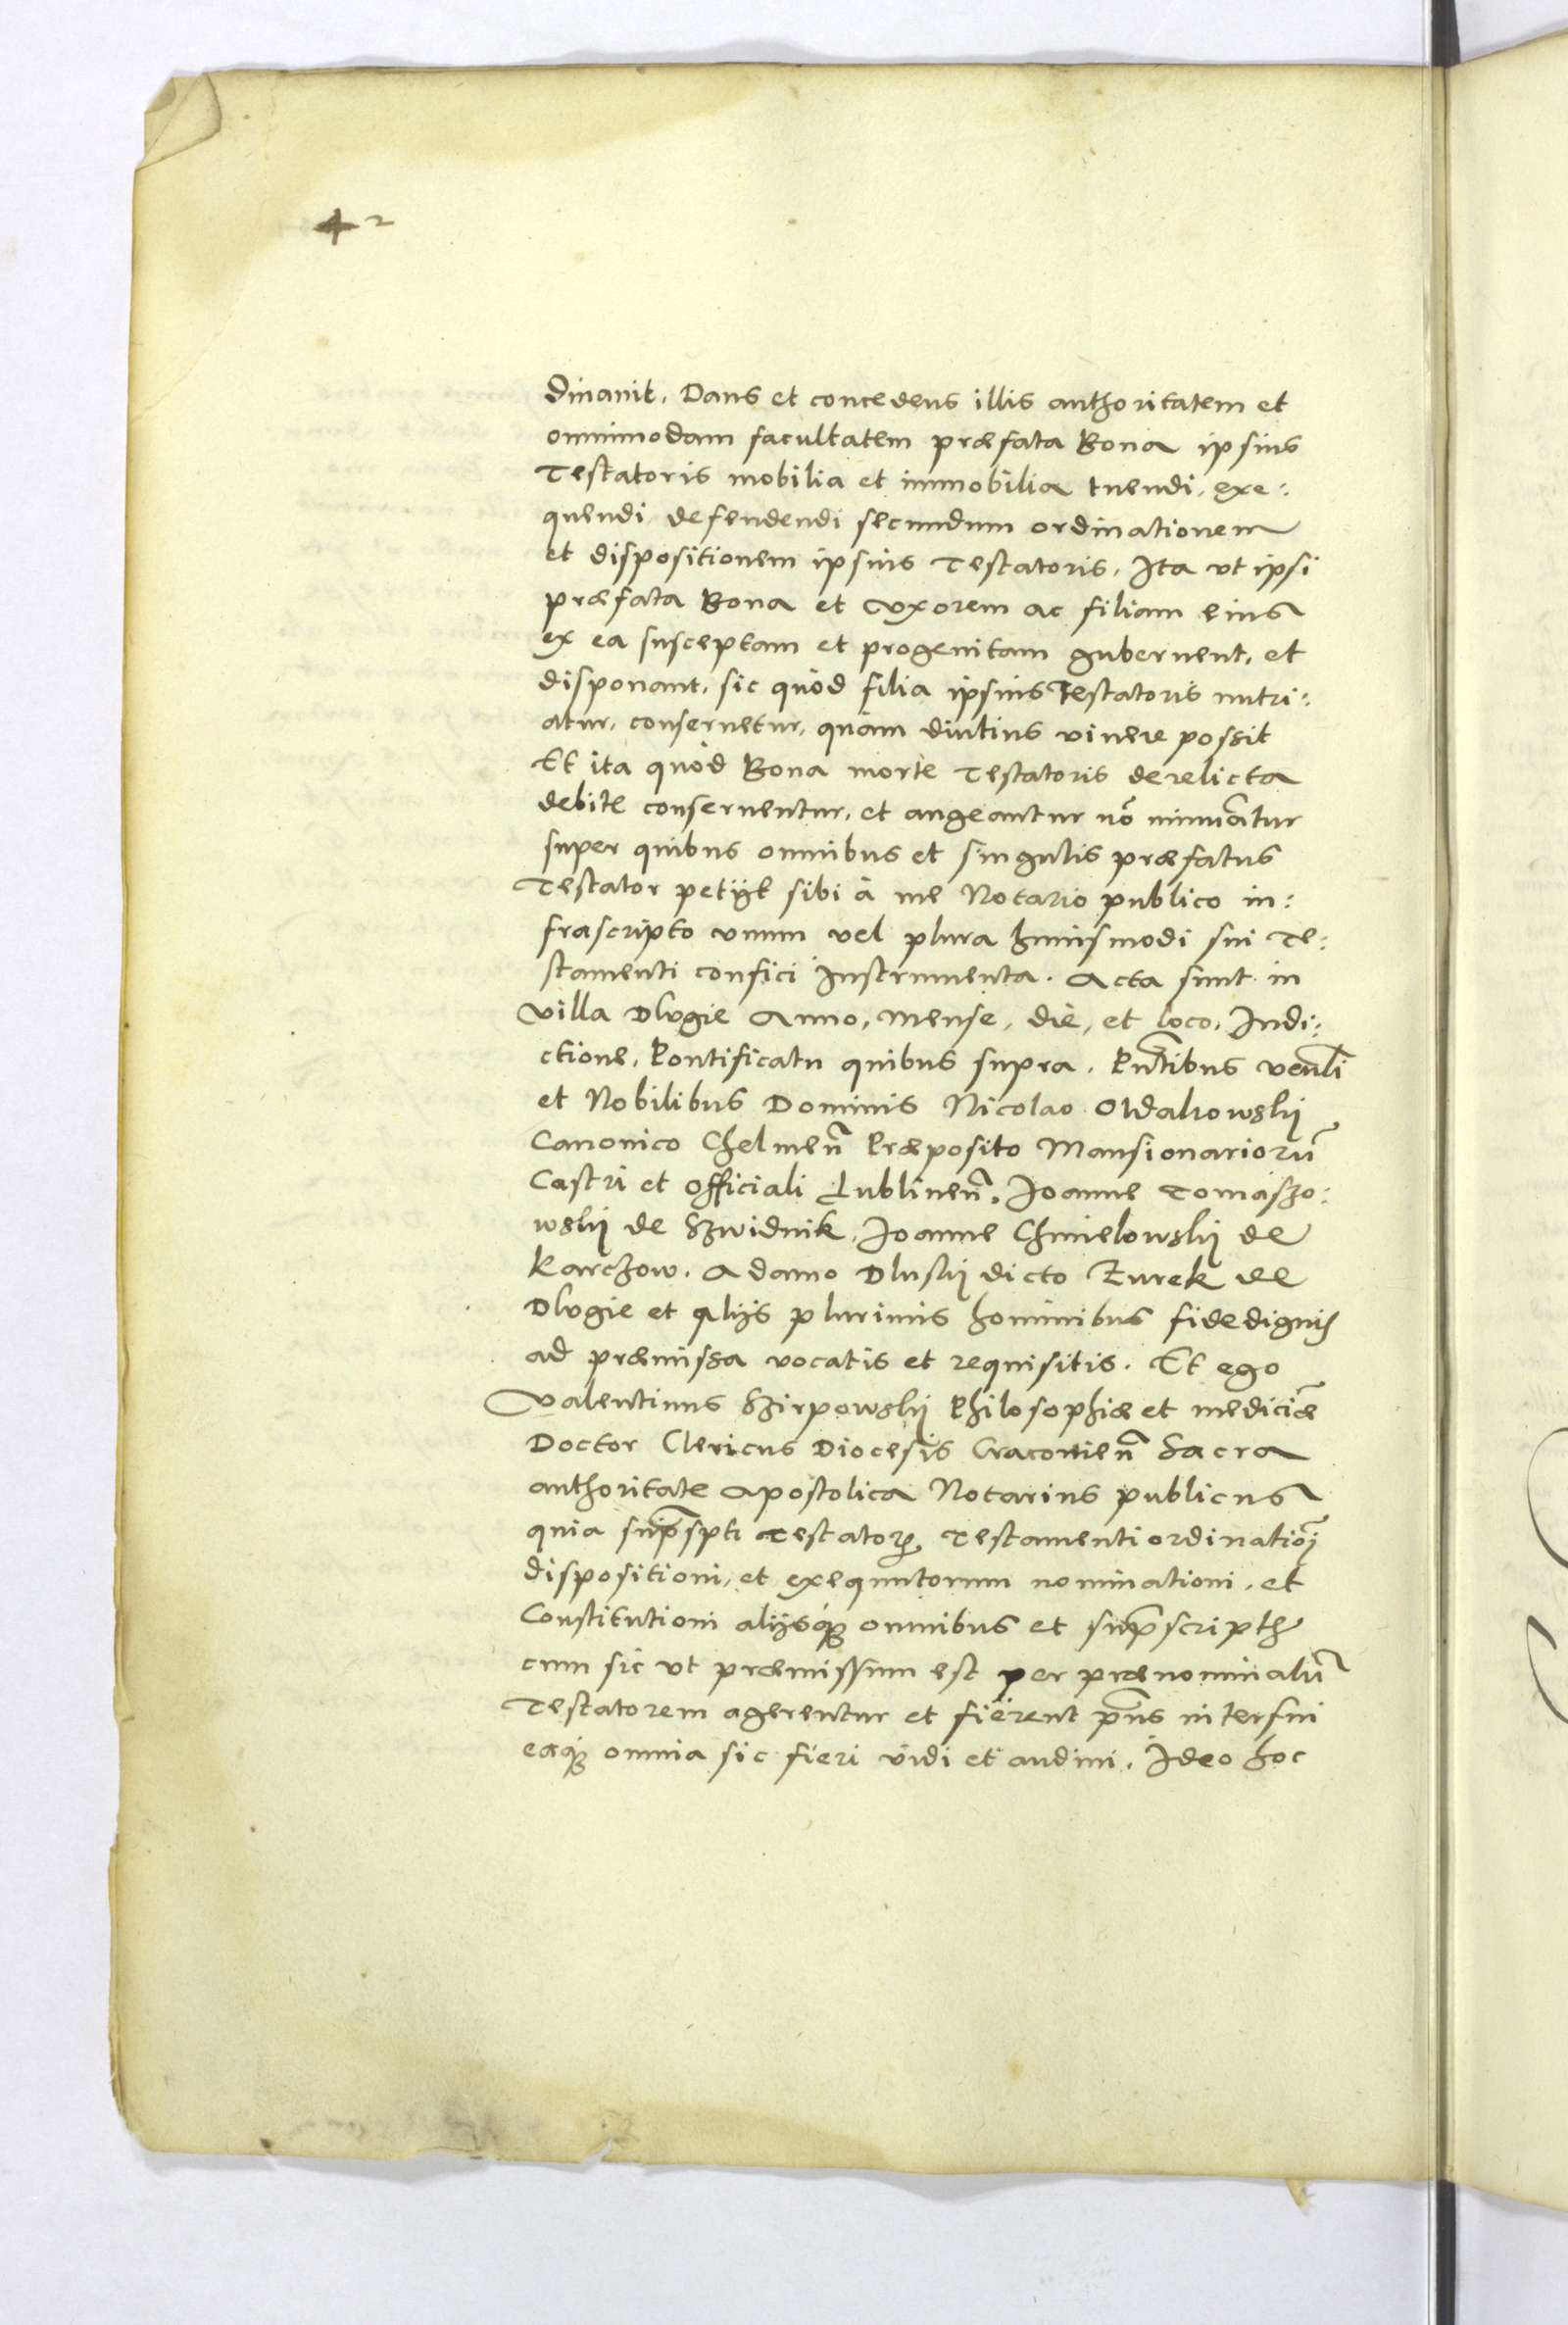 42
dinauit. Dans et concedens illis authoritatem et
omnimodam facultatem præfata Bona ipsius
Testatoris mobilia et immobilia tuendi, exe:
quendi defendendi secundum ordinationem
et dispositionem ipsius Testatoris. Ita vt ipsi
præfata Bona et vxorem ac filiam eius
ex ea susceptam et progenitam gubernent, et
disponant, sic quòd filia ipsius Testatoris nutri:
atur, conseruetur, quàm diutius viuere possit
Et ita quòd Bona morte Testatoris derelicta
debitè conseruentur, et augeantur nō minuātur
super quibus omnibus et singulis præfatus
Testator petijt sibi à me Notario publico in:
frascripto vnum vel plura huiusmodi sui Te:
stamenti confici Instrumenta. Acta sunt in
villa Dlvgie Anno, mense, die, et loco, Indi:
ctione, Pontificatu quibus supra. Pn̄tibus ven̄li
et Nobilibus Dominis Nicolao Oldakowskij
Canonico Chelmeñ Præposito Mansionariorū
Castri et Officiali Lublineñ. Joanne Tomaszo:
wskij de Szwidnik, Joanne Chmielowskij de
Karczow. Adamo Dluskij dicto Zurek de
Dlvgie et alijs plurimis hominibus fidedignis
ad præmissa vocatis et requisitis. Et ego
Valentinus Szirpowskij Philosophiæ et mediciæ
Doctor Clericus Diocesis Cracouieñ Sacra
authoritate Apostolica Notarius publicus
quia sup̄spti Testatoꝝ Testamenti ordinatiōi
dispositioni, et exequutorum nominationi, et
Constitutioni alijsq́ꝫ omnibus et sup̄scriptꝭ
cum sic vt præmissum est per prænominatū
Testatorem agerentur et fierent pn̄s interfui
eaq́ꝫ omnia sic fieri vidi et audiui. Ideo hoc